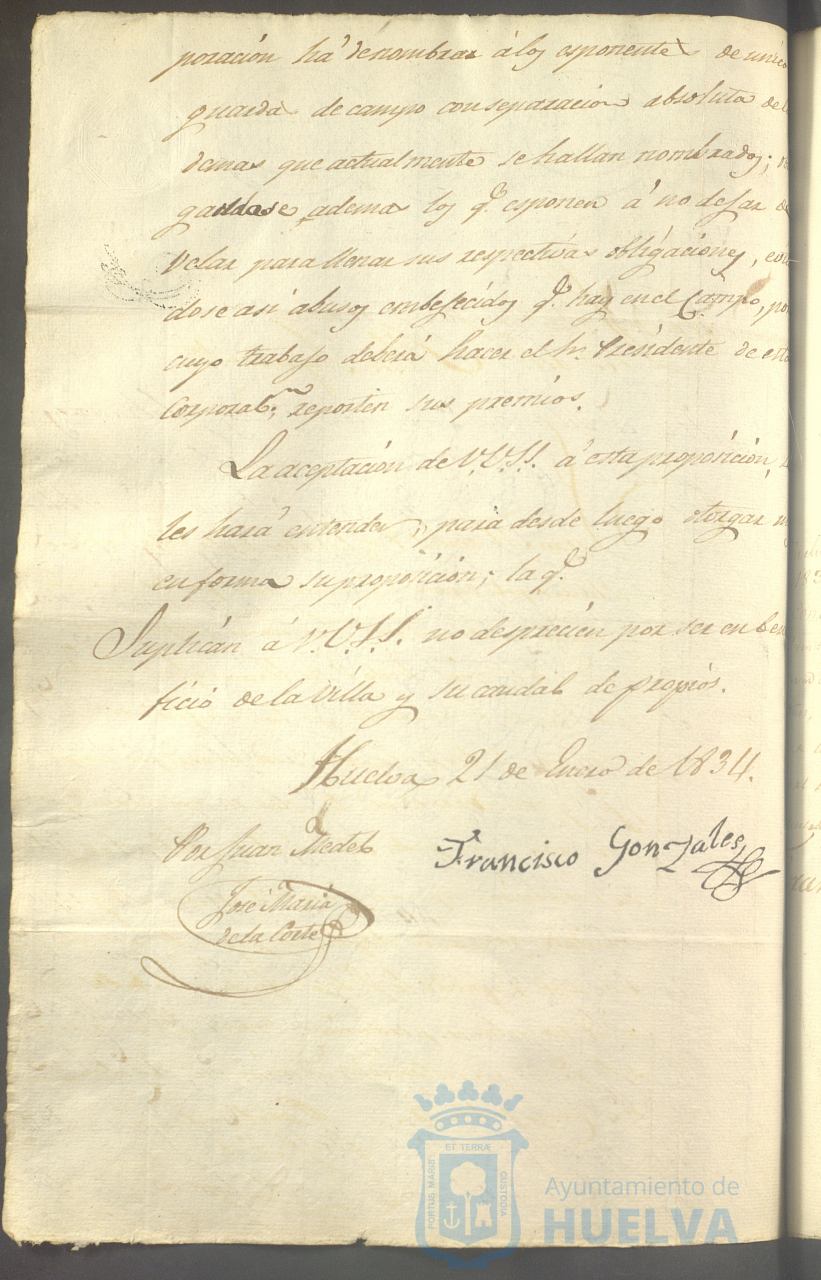 poración há de nombrar á los esponentes de unico
guarda de campo con separacion absoluta de
demas que actualmente se hallan nombrados;
ademas los q.e esponen á no dejar de
velar para llenar sus respectivas obligaciones,
dose asi abusos embejecidos q.e hay en el Campo, por
cuyo trabajo deberá hacer el Sr. Presidente de esta
Corporac.n reporten sus premios.
La aceptacion de V.V.S.S. á esta proposicion,
les hará entender, para desde luego otorgar
en forma su proposicion; la q.e
Suplican á V.V.S.S. no desprecien por ser en bene
ficio de la Villa y su caudal de propios.
Huelva 21 de Enero de 1834.
Por Juan Medel
Francisco Gonzales
Jose Maria
de la Corte
ET TERRÆ
PORTUS MARIS
CUSTODIA
Ayuntamiento de
HUELVA